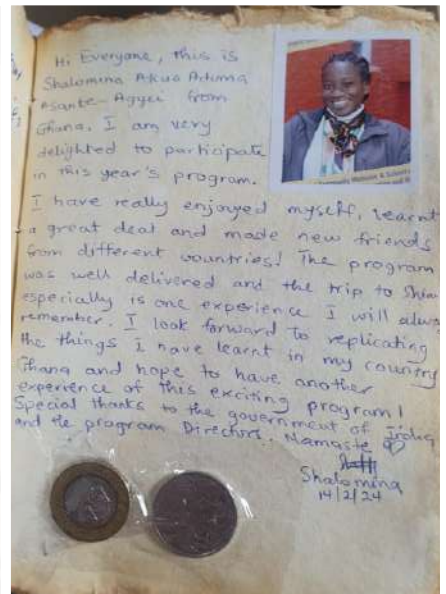 Hi Everyone, this is
Shalomina Akua Aduma
Asante-Agyei from
Ghana. I am very
delighted to participate
in this year's program.
I have really enjoyed myself, learnt
a great deal and made new friends
from different countries! The program
was well delivered and the trip to
especially is one experience I will
remember. I look forward to replicating
the things I have learnt in my country
Ghana and hope to have another
experience of this exciting program!
Special thanks to the government of India
and the program Directors. Namaste
Shalomina
14/2/24